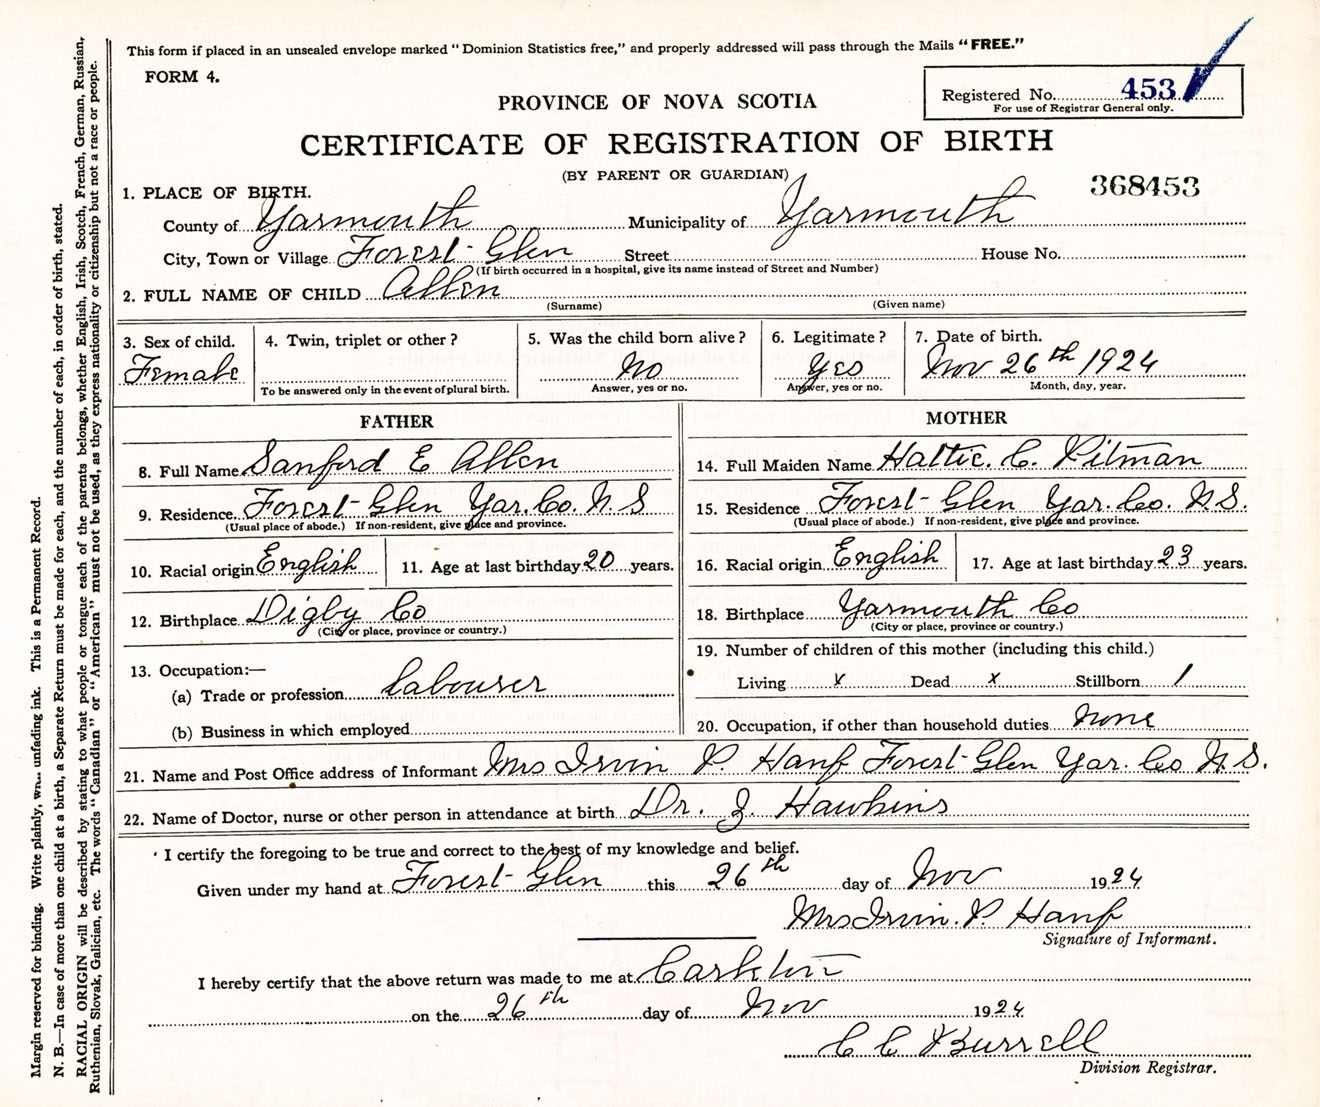 This form if placed in an unsealed envelope marked "Dominion Statistics free," and properly addressed will pass through the Mails "FREE."
FORM 4.
Registered No. 453
For use of Registrar General only.
PROVINCE OF NOVA SCOTIA
CERTIFICATE OF REGISTRATION OF BIRTH
(BY PARENT OR GUARDIAN)
368453
1. PLACE OF BIRTH.
County of Yarmouth Municipality of Yarmouth
City, Town or Village Forest Glen Street House No.
(If birth occurred in a hospital, give its name instead of Street and Number)
2. FULL NAME OF CHILD Allen
(Surname) (Given name)
3. Sex of child. 4. Twin, triplet or other? 5. Was the child born alive? 6. Legitimate? 7. Date of birth.
Female No Yes Nov 26th 1924
To be answered only in the event of plural birth. Answer, yes or no. Answer, yes or no. Month, day, year.
FATHER
8. Full Name Sanford E Allen
9. Residence Forest Glen Yar. Co. N. S
(Usual place of abode.) If non-resident, give place and province.
10. Racial origin English 11. Age at last birthday 20 years.
12. Birthplace Digby Co
(City or place, province or country.)
13. Occupation:—
(a) Trade or profession Labourer
(b) Business in which employed
MOTHER
14. Full Maiden Name Hattie. C. Pitman
15. Residence Forest Glen Yar. Co. N.S.
(Usual place of abode.) If non-resident, give place and province.
16. Racial origin English 17. Age at last birthday 23 years.
18. Birthplace Yarmouth Co
(City or place, province or country.)
19. Number of children of this mother (including this child.)
Living x Dead x Stillborn 1
20. Occupation, if other than household duties None
21. Name and Post Office address of Informant Mrs Irvin P. Hanf Forest Glen Yar. Co N.S.
22. Name of Doctor, nurse or other person in attendance at birth Dr. Z Hawkins
I certify the foregoing to be true and correct to the best of my knowledge and belief.
Given under my hand at Forest Glen this 26th day of Nov 1924
Mrs Irvin. P. Hanf
Signature of Informant.
I hereby certify that the above return was made to me at Carleton
on the 26th day of Nov 1924
Division Registrar.
Margin reserved for binding. Write plainly, unfading ink. This is a Permanent Record.
N. B.—In case of more than one child at a birth, a Separate Return must be made for each, and the number of each, in order of birth, stated.
RACIAL ORIGIN will be described by stating to what people or tongue each of the parents belongs, whether English, Irish, Scotch, French, German, Russian,
Ruthenian, Slovak, Galician, etc. The words "Canadian" or "American" must not be used, as they express nationality or citizenship but not a race or people.